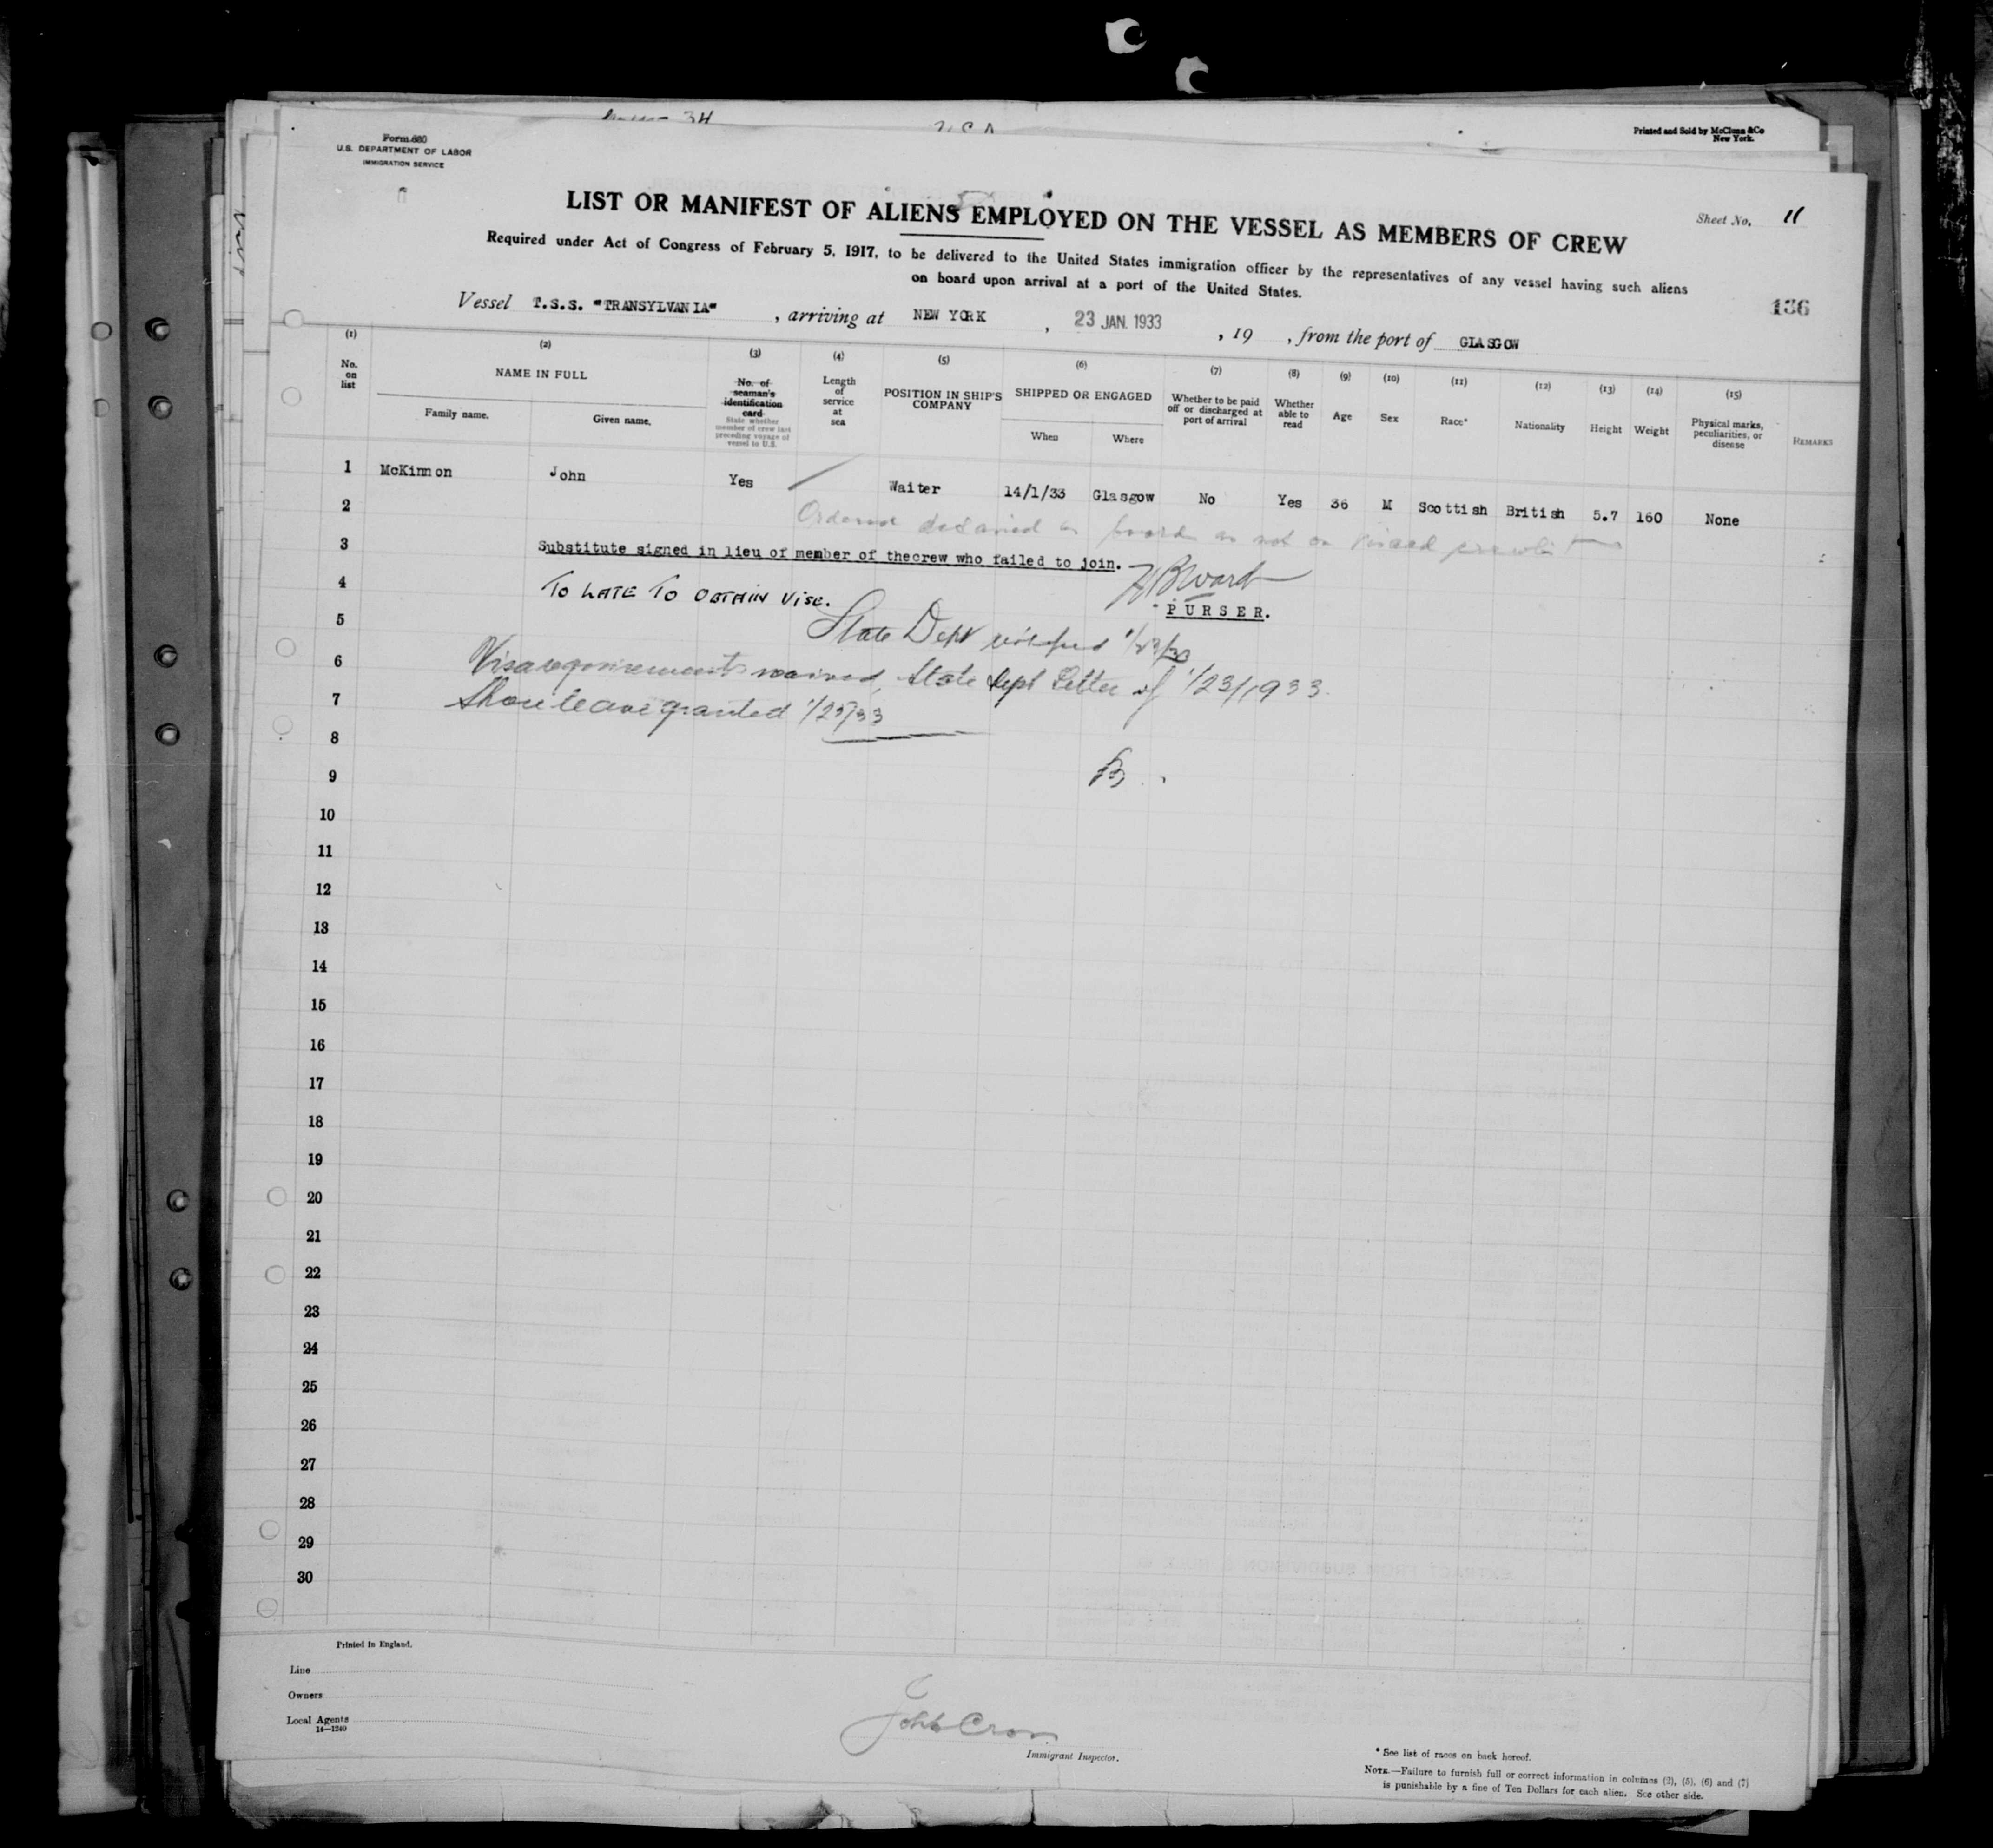 Form 680
U.S. DEPARTMENT OF LABOR
IMMIGRATION SERVICE
Printed and Sold by McClunn &Co
New York.
LIST OR MANIFEST OF ALIENS EMPLOYED ON THE VESSEL AS MEMBERS OF CREW
Sheet No. 11
Required under Act of Congress of February 5, 1917, to be delivered to the United States immigration officer by the representatives of any vessel having such aliens
on board upon arrival at a port of the United States.
136
Vessel T.S.S. "TRANSYLVANIA" , arriving at NEW YORK , 23 JAN. 1933 , 19 , from the port of GLASGOW
(1) (2) (3) (4) (5) (6) (7) (8) (9) (10) (11) (12) (13) (14) (15)
No. on list
NAME IN FULL
Family name. Given name.
No. of seaman's identification card
State whether member of crew last preceding voyage of vessel to U.S.
Length of service at sea
POSITION IN SHIP'S COMPANY
SHIPPED OR ENGAGED
When Where
Whether to be paid off or discharged at port of arrival
Whether able to read
Age
Sex
Race*
Nationality
Height
Weight
Physical marks, peculiarities, or disease
REMARKS
1 McKinnon John Yes Waiter 14/1/33 Glasgow No Yes 36 M Scottish British 5.7 160 None
2 Ordered detained on board as not on visaed
3 Substitute signed in lieu of member of thecrew who failed to join.
H B Ward
4 TO LATE TO OBTAIN VISE.
PURSER.
5 State Dept
6 Visa requirements waived, State Dept Letter of 1/23/1933.
7 Shore leave granted 1/25/33
8
9 B
10
11
12
13
14
15
16
17
18
19
20
21
22
23
24
25
26
27
28
29
30
Printed in England.
Line
Owners
Local Agents
14—1240
John Cron
Immigrant Inspector.
* See list of races on back hereof.
NOTE.—Failure to furnish full or correct information in columns (2), (5), (6) and (7)
is punishable by a fine of Ten Dollars for each alien. See other side.